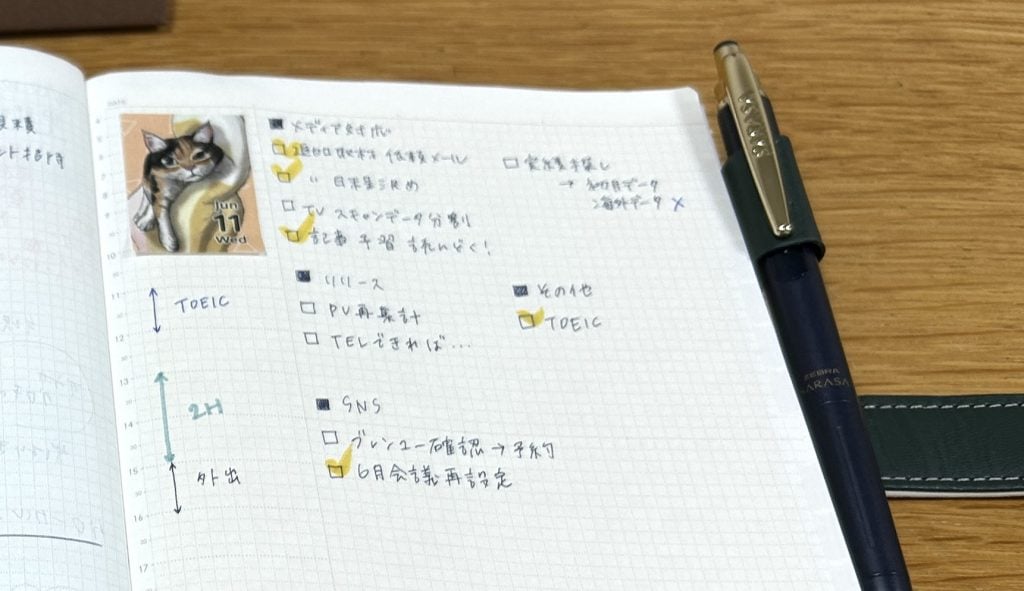 Jun
11
Wed
■ メディア対応
□ 追加取材 依頼メール
□ 〃 日程決め
□ TV スキャンデータ分割
□ 記事 予習 読んどく!
□ 実績探し
→ 初月データ
海外データ ×
■ リリース
□ PV再集計
□ TELできれば…
■ その他
□ TOEIC
■ SNS
□ プレビュー確認→予約
□ 6月会議再設定
TOEIC
2H
外出
11
12
13
14
15
16
17
ZEBRA
SARASA